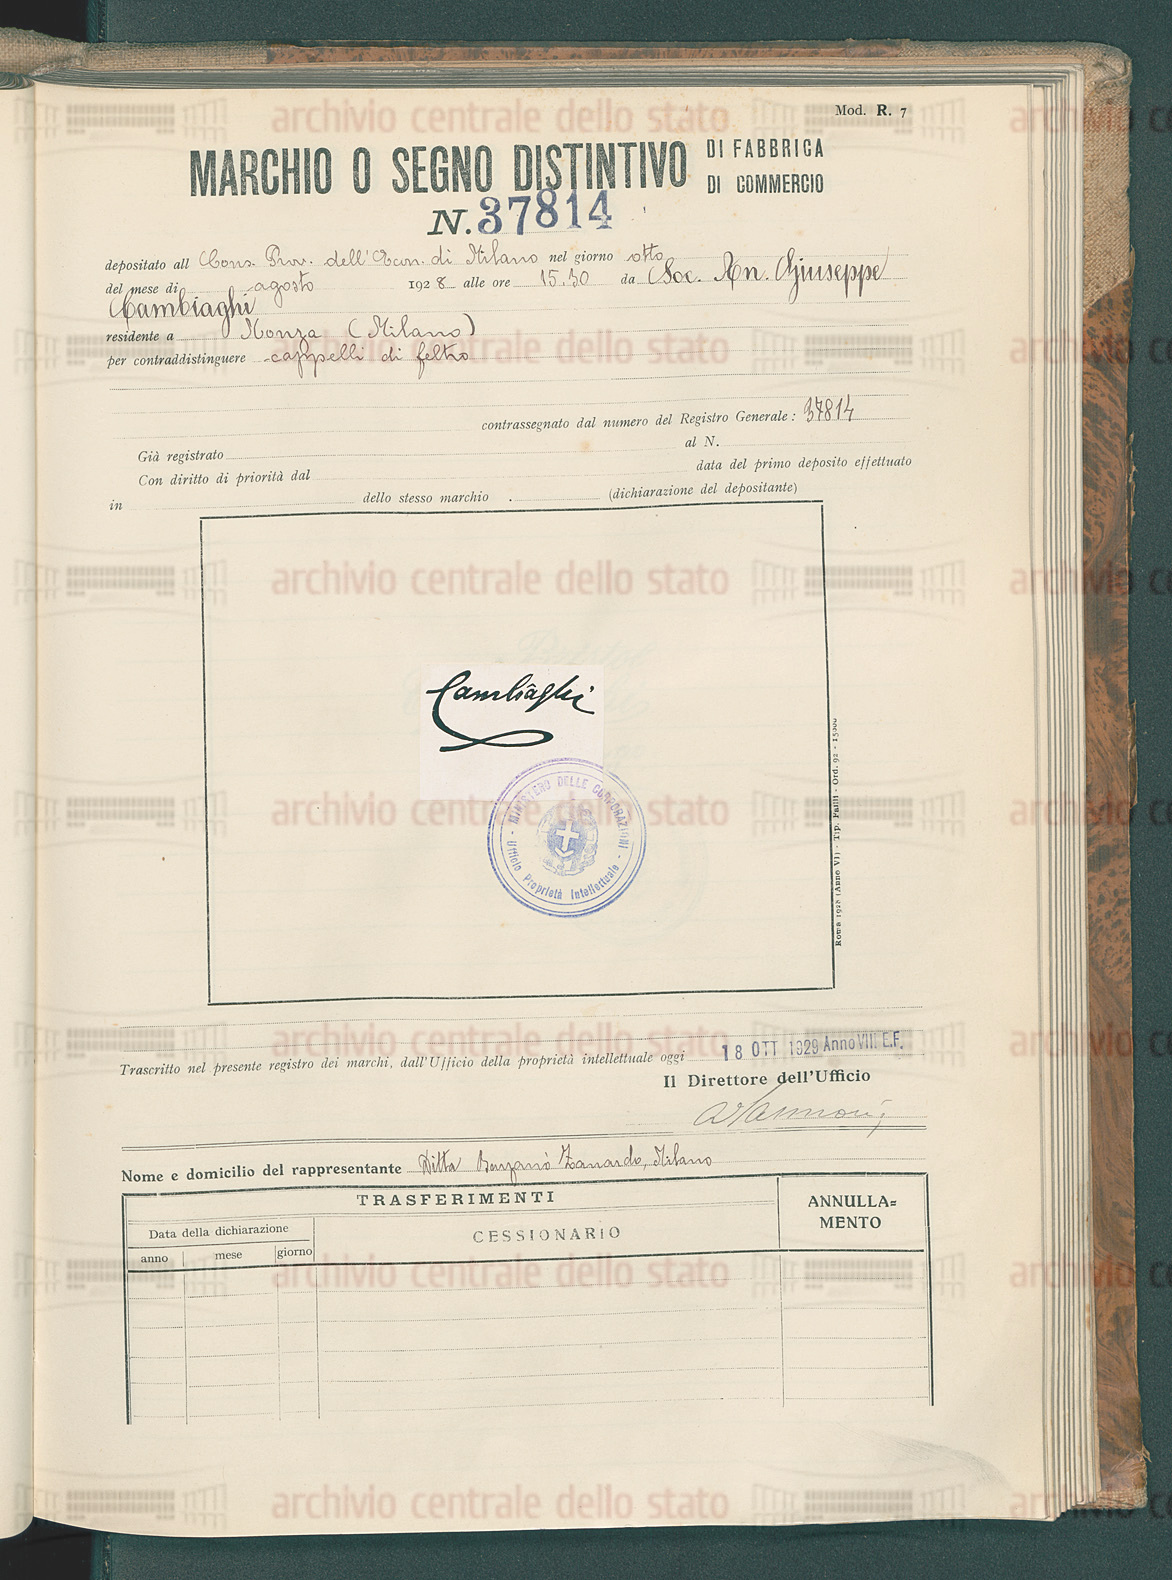 Mod. R. 7
MARCHIO O SEGNO DISTINTIVO DI FABBRICA
DI COMMERCIO
N. 37814
depositato all Cons. Prov. dell'Econ. di Milano nel giorno otto
del mese di agosto 1928 alle ore 15.30 da Soc. An. Giuseppe
Cambiaghi
residente a Monza (Milano)
per contraddistinguere cappelli di feltro
contrassegnato dal numero del Registro Generale: 37814
Già registrato al N.
Con diritto di priorità dal data del primo deposito effettuato
in dello stesso marchio . (dichiarazione del depositante)
Cambiaghi
MINISTERO DELLE CORPORAZIONI
Ufficio Proprietà Intellettuale
Roma 1928 (Anno VI) - Tip. Failli - Ord. 92 - 15000
Trascritto nel presente registro dei marchi, dall'Ufficio della proprietà intellettuale oggi 18 OTT 1929 Anno VIII E.F.
Il Direttore dell'Ufficio
Nome e domicilio del rappresentante Ditta Barzanò Zanardo, Milano
TRASFERIMENTI
ANNULLA=
MENTO
Data della dichiarazione
CESSIONARIO
anno mese giorno
archivio centrale dello stato